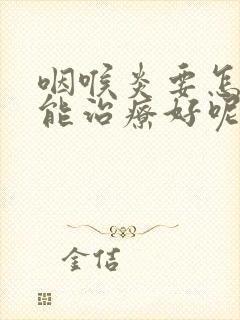 咽喉炎要怎
能治疗好呢
金佶